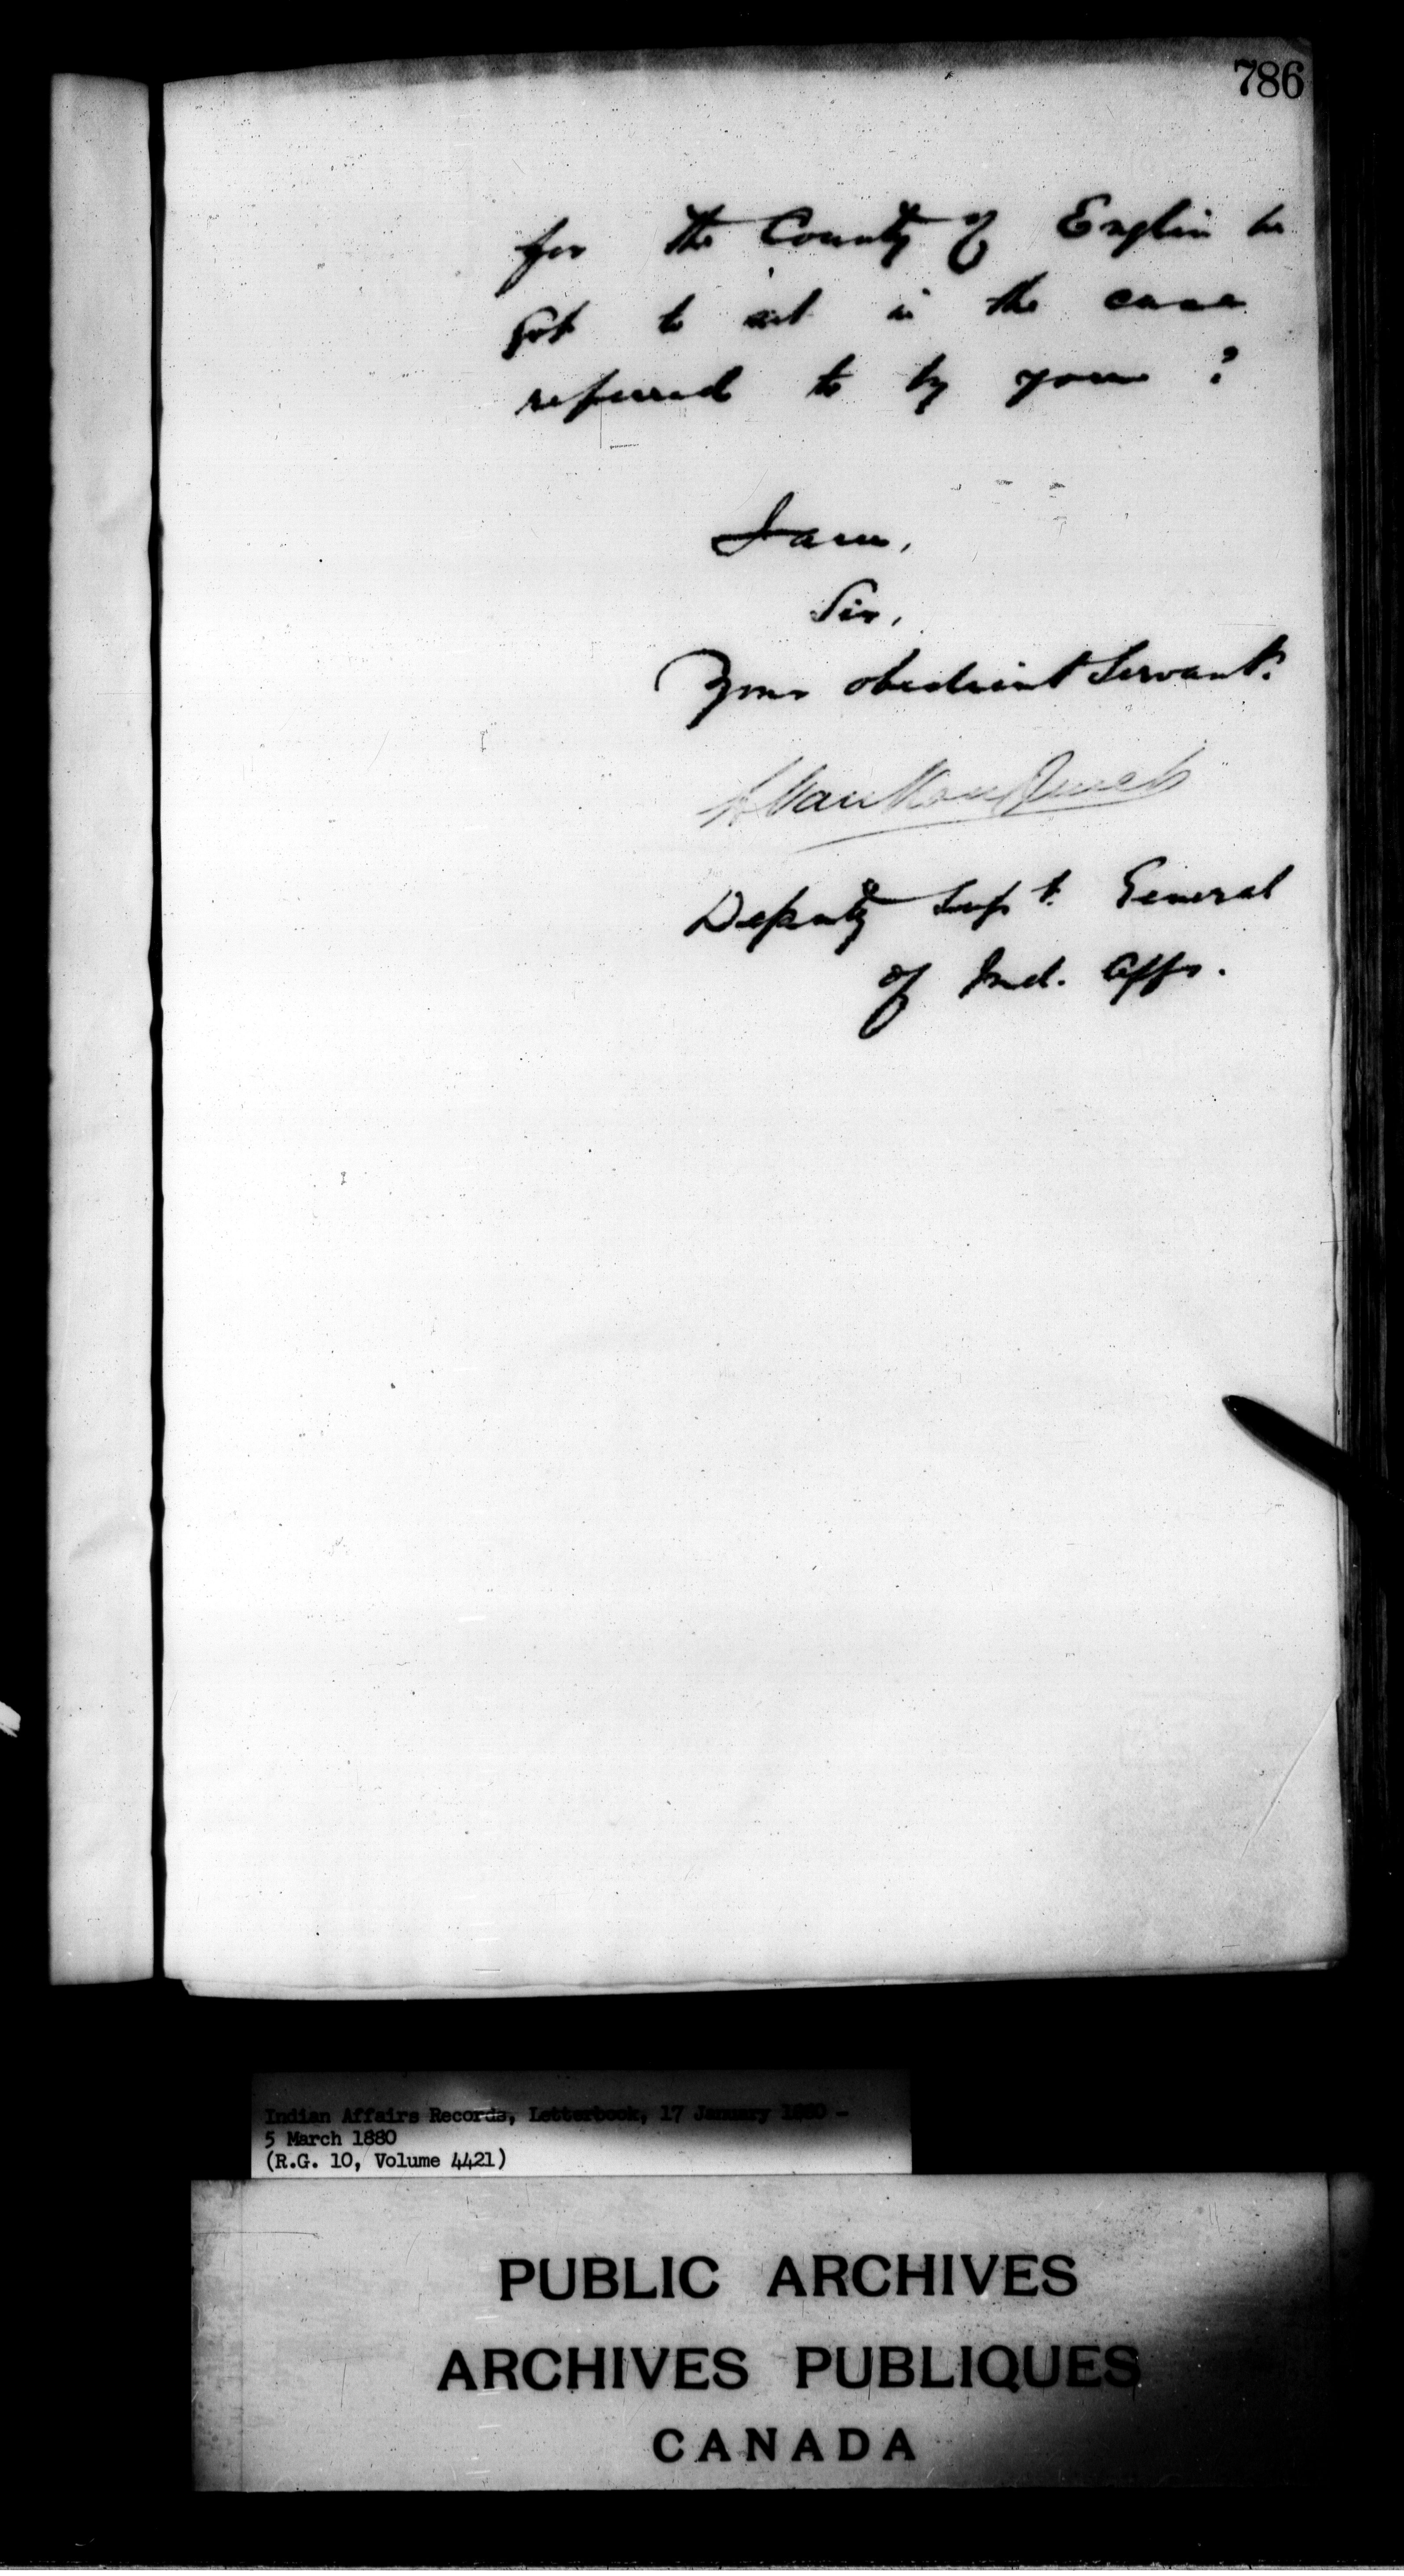 786
for the County of Englin be
got to act in the case
referred to by you ?
I am,
Sir,
Your obedient Servant.
L VanKoughnet
Deputy Supt. General
of Ind. Affrs.
Indian Affairs Records, Letterbook, 17 January 1880 -
5 March 1880
(R.G. 10, Volume 4421)
PUBLIC ARCHIVES
ARCHIVES PUBLIQUES
CANADA